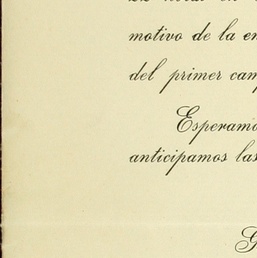 motivo de la en
del primer cam
Esperamo
anticipamos las
G